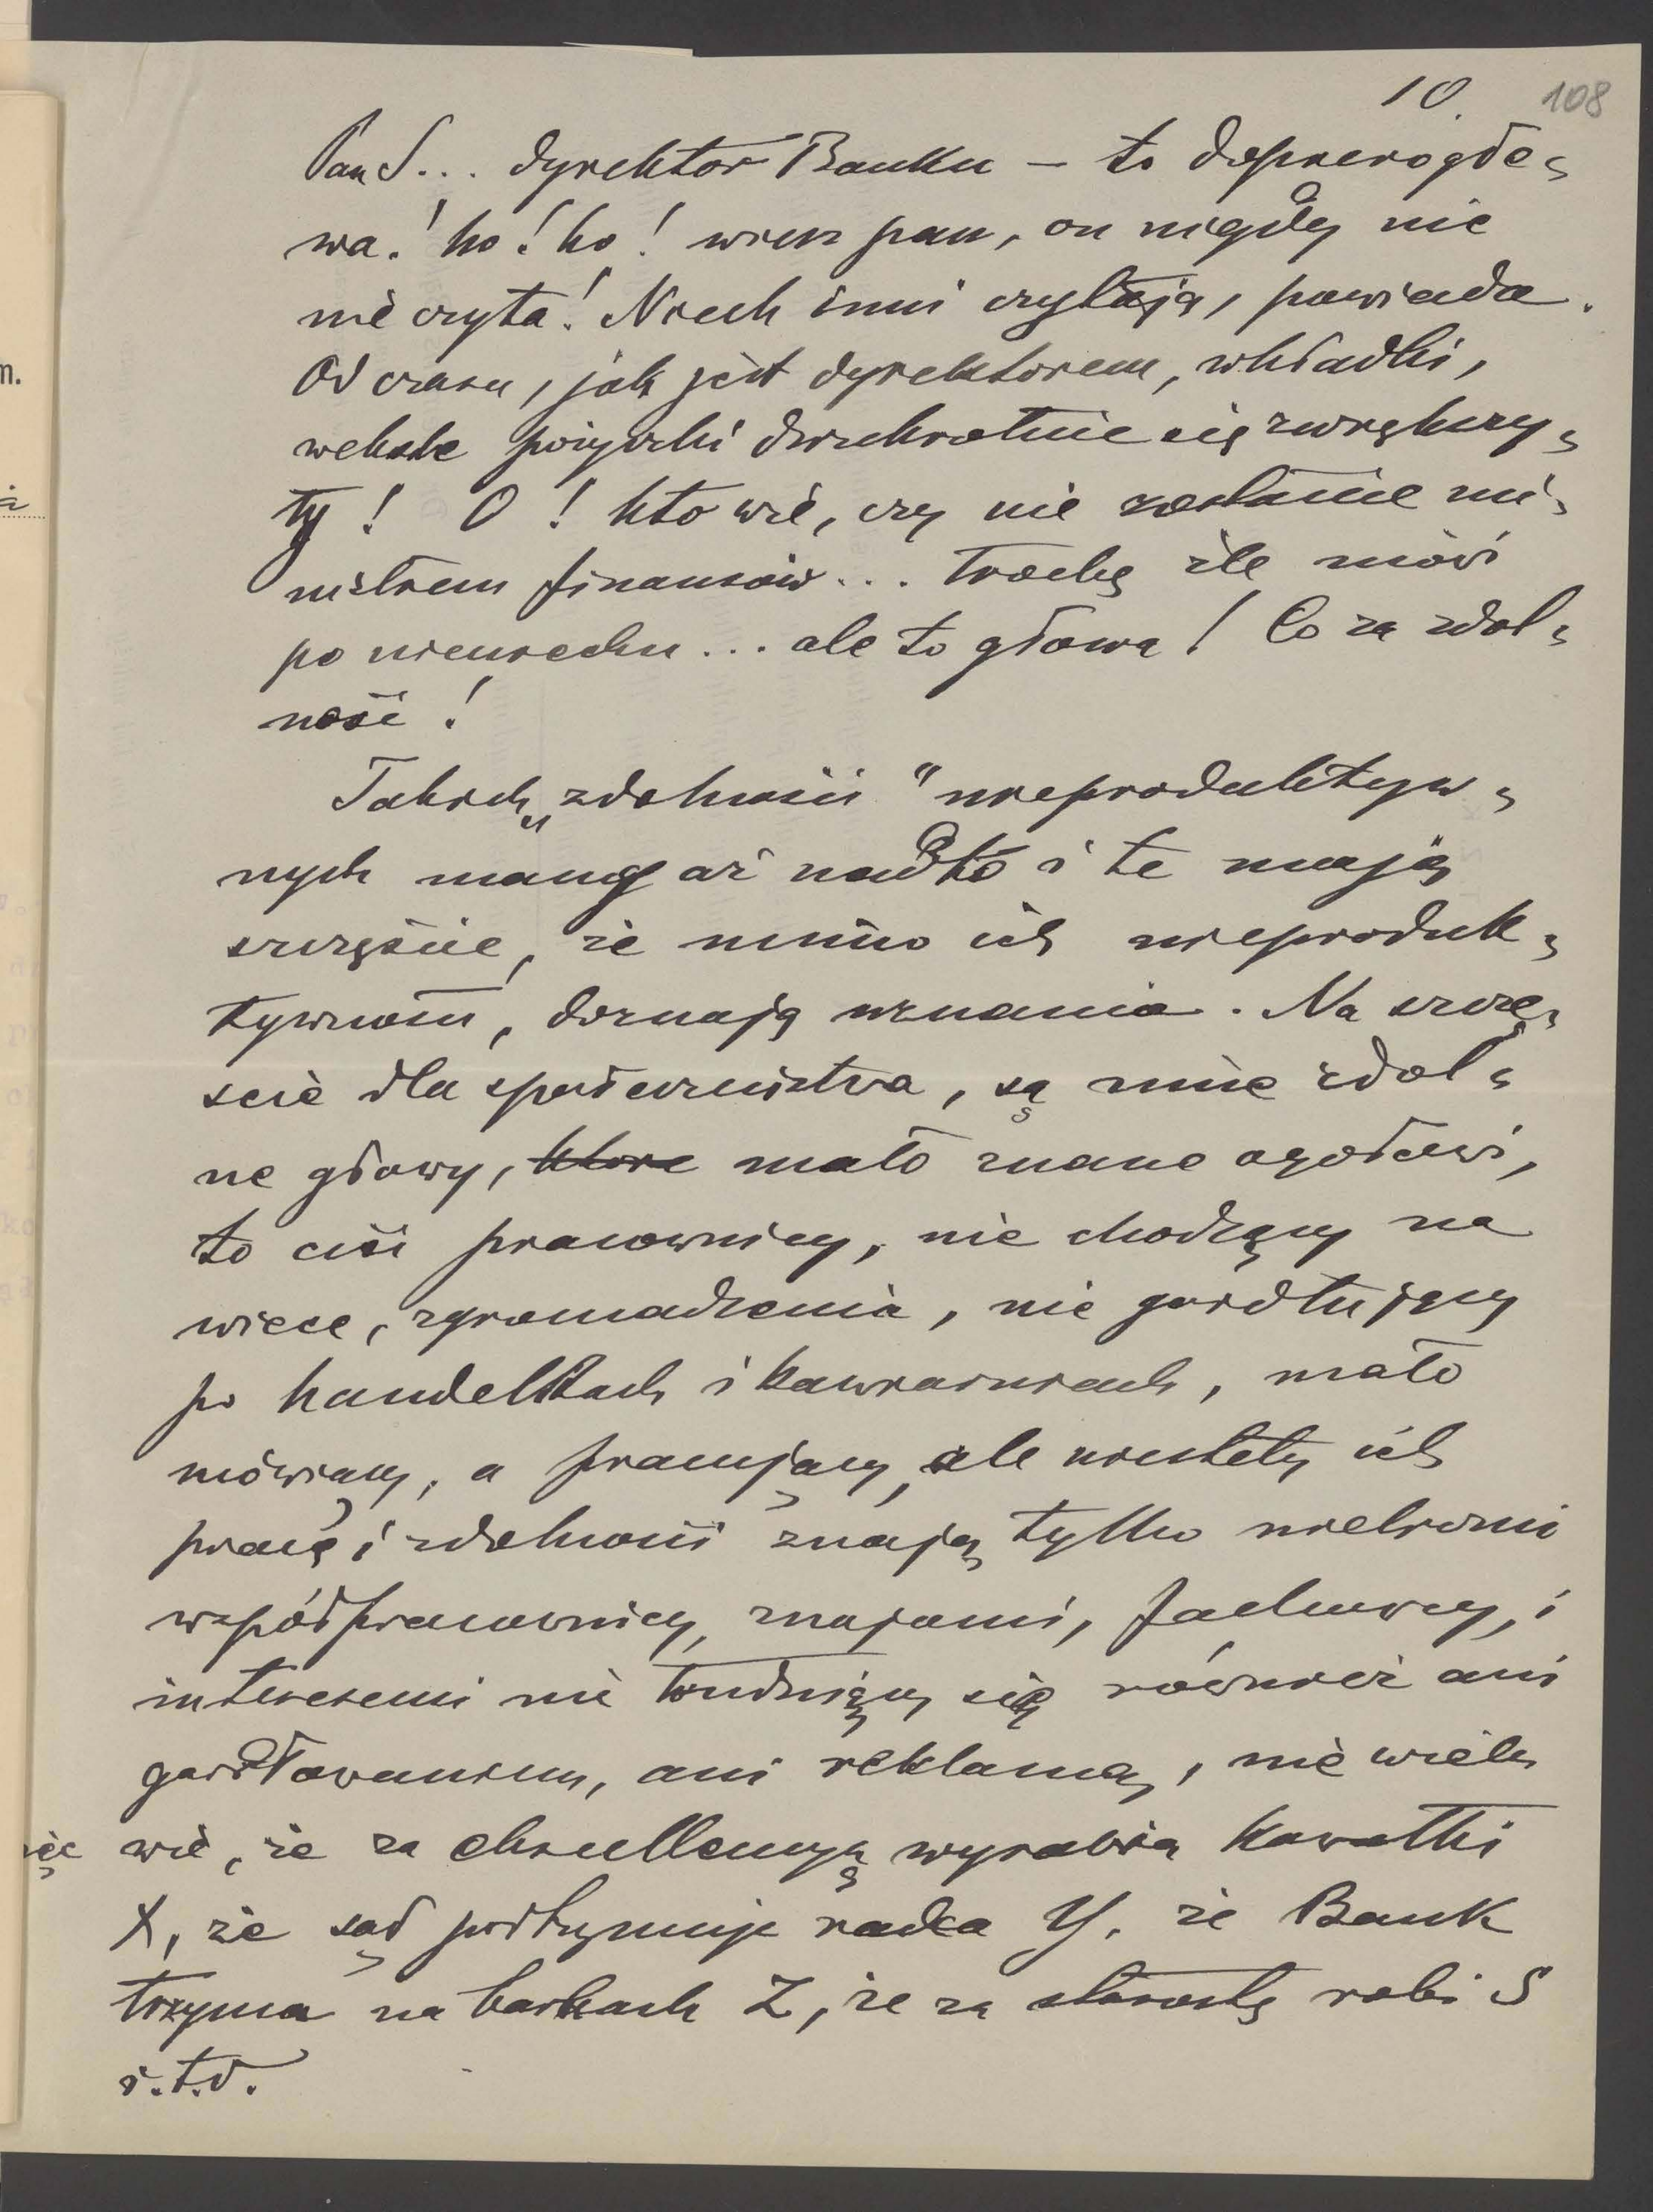 10. 108
Pan S... dyrektor Banku – to dopiero gło=
wa! ho! ho! wiesz pan, on nigdy nic
nie czyta! Niech inni czytają, powiada.
Od czasu, jak jest dyrektorem, wkładki,
weksle pożyczki dwukrotnie się zwiększy=
ły! O! kto wie, czy nie zostanie mi=
nistrem finansów... Trochę źle mówi
po niemiecku... ale to głowa! Co za zdol=
ność!
Takich „zdolności" nieproduktyw=
nych mamy aż nadto i te mają
szczęście, że mimo ich nieproduk=
tywności, doznają uznania. Na szczę=
ście dla społeczeństwa, są inne zdol=
ne głowy, które mało znane ogółowi,
to cisi pracownicy, nie chodzący na
wiece, zgromadzenia, nie gardłujący
po handelkach i kawiarniach, mało
mówiący, a pracujący, ale niestety ich
pracę i zdolności znają tylko nieliczni
współpracownicy, znajomi, fachowcy, i
interesemi nie trudniący się również ani
gardłowaniem, ani reklamą, nie wielu
wie, że za ekscellencyą wyrabia kawałki
X, że sąd podtrzymuje radca Y, że Bank
trzyma na barkach Z, że za starostę robi S
i.t.d.